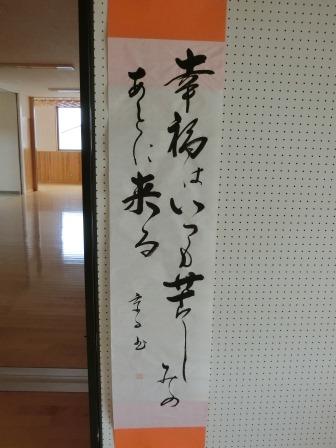 幸福はいつも苦しみの
あとに来る